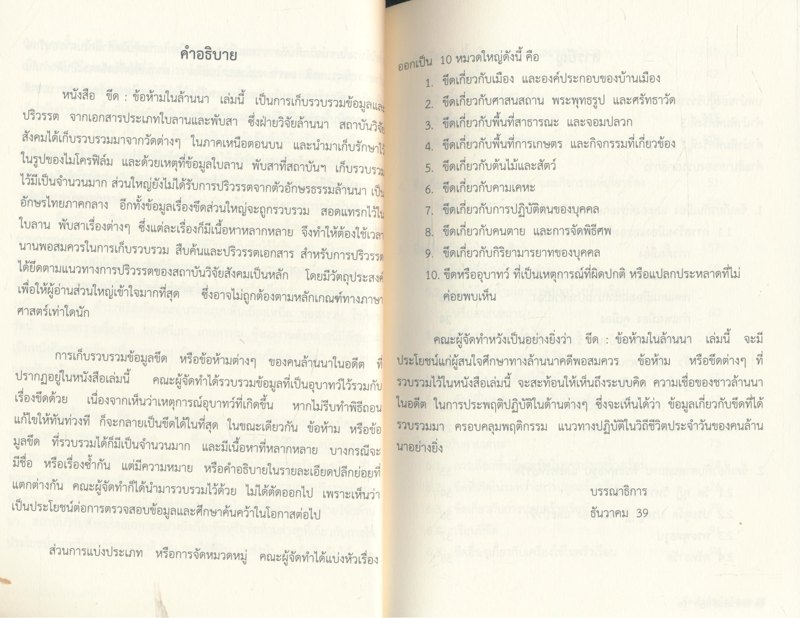 คำอธิบาย
หนังสือ ขึด : ข้อห้ามในล้านนา เล่มนี้ เป็นการเก็บรวบรวมข้อมูลและ
ปริวรรต จากเอกสารประเภทใบลานและพับสา ซึ่งฝ่ายวิจัยล้านนา สถาบันวิจัย
สังคมได้เก็บรวบรวมมาจากวัดต่างๆ ในภาคเหนือตอนบน และนำมาเก็บรักษาไว้
ในรูปของไมโครฟิล์ม และด้วยเหตุที่ข้อมูลใบลาน พับสาที่สถาบันฯ เก็บรวบรวม
ไว้มีเป็นจำนวนมาก ส่วนใหญ่ยังไม่ได้รับการปริวรรตจากตัวอักษรธรรมล้านนา เป็น
อักษรไทยภาคกลาง อีกทั้งข้อมูลเรื่องขึดส่วนใหญ่จะถูกรวบรวม สอดแทรกไว้ใน
ใบลาน พับสาเรื่องต่างๆ ซึ่งแต่ละเรื่องก็มีเนื้อหาหลากหลาย จึงทำให้ต้องใช้เวลา
นานพอสมควรในการเก็บรวบรวม สืบค้นและปริวรรตเอกสาร สำหรับการปริวรรต
ได้ยึดตามแนวทางการปริวรรตของสถาบันวิจัยสังคมเป็นหลัก โดยมีวัตถุประสงค์
เพื่อให้ผู้อ่านส่วนใหญ่เข้าใจมากที่สุด ซึ่งอาจไม่ถูกต้องตามหลักเกณฑ์ทางภาษา
ศาสตร์เท่าใดนัก
การเก็บรวบรวมข้อมูลขึด หรือข้อห้ามต่างๆ ของคนล้านนาในอดีต ที่
ปรากฏอยู่ในหนังสือเล่มนี้ คณะผู้จัดทำได้รวบรวมข้อมูลที่เป็นอุบาทว์ไว้รวมกับ
เรื่องขึดด้วย เนื่องจากเห็นว่าเหตุการณ์อุบาทว์ที่เกิดขึ้น หากไม่รีบทำพิธีถอน
แก้ไขให้ทันท่วงที ก็จะกลายเป็นขึดได้ในที่สุด ในขณะเดียวกัน ข้อห้าม หรือข้อ
มูลขึด ที่รวบรวมได้ก็มีเป็นจำนวนมาก และมีเนื้อหาที่หลากหลาย บางกรณีจะ
มีชื่อ หรือเรื่องซ้ำกัน แต่มีความหมาย หรือคำอธิบายในรายละเอียดปลีกย่อยที่
แตกต่างกัน คณะผู้จัดทำก็ได้นำมารวบรวมไว้ด้วย ไม่ได้ตัดออกไป เพราะเห็นว่า
เป็นประโยชน์ต่อการตรวจสอบข้อมูลและศึกษาค้นคว้าในโอกาสต่อไป
ส่วนการแบ่งประเภท หรือการจัดหมวดหมู่ คณะผู้จัดทำได้แบ่งหัวเรื่อง
ออกเป็น 10 หมวดใหญ่ดังนี้ คือ
1. ขึดเกี่ยวกับเมือง และองค์ประกอบของบ้านเมือง
2. ขึดเกี่ยวกับศาสนสถาน พระพุทธรูป และศรัทธาวัด
3. ขึดเกี่ยวกับพื้นที่สาธารณะ และจอมปลวก
4. ขึดเกี่ยวกับพื้นที่การเกษตร และกิจกรรมที่เกี่ยวข้อง
5. ขึดเกี่ยวกับต้นไม้และสัตว์
6. ขึดเกี่ยวกับคามเคหะ
7. ขึดเกี่ยวกับการปฏิบัติตนของบุคคล
8. ขึดเกี่ยวกับคนตาย และการจัดพิธีศพ
9. ขึดเกี่ยวกับกิริยามารยาทของบุคคล
10. ขึดหรืออุบาทว์ ที่เป็นเหตุการณ์ที่ผิดปกติ หรือแปลกประหลาดที่ไม่
ค่อยพบเห็น
คณะผู้จัดทำหวังเป็นอย่างยิ่งว่า ขึด : ข้อห้ามในล้านนา เล่มนี้ จะมี
ประโยชน์แก่ผู้สนใจศึกษาทางล้านนาคดีพอสมควร ข้อห้าม หรือขึดต่างๆ ที่
รวบรวมไว้ในหนังสือเล่มนี้ จะสะท้อนให้เห็นถึงระบบคิด ความเชื่อของชาวล้านนา
ในอดีต ในการประพฤติปฏิบัติในด้านต่างๆ ซึ่งจะเห็นได้ว่า ข้อมูลเกี่ยวกับขึดที่ได้
รวบรวมมา ครอบคลุมพฤติกรรม แนวทางปฏิบัติในวิถีชีวิตประจำวันของคนล้าน
นาอย่างยิ่ง
บรรณาธิการ
ธันวาคม 39